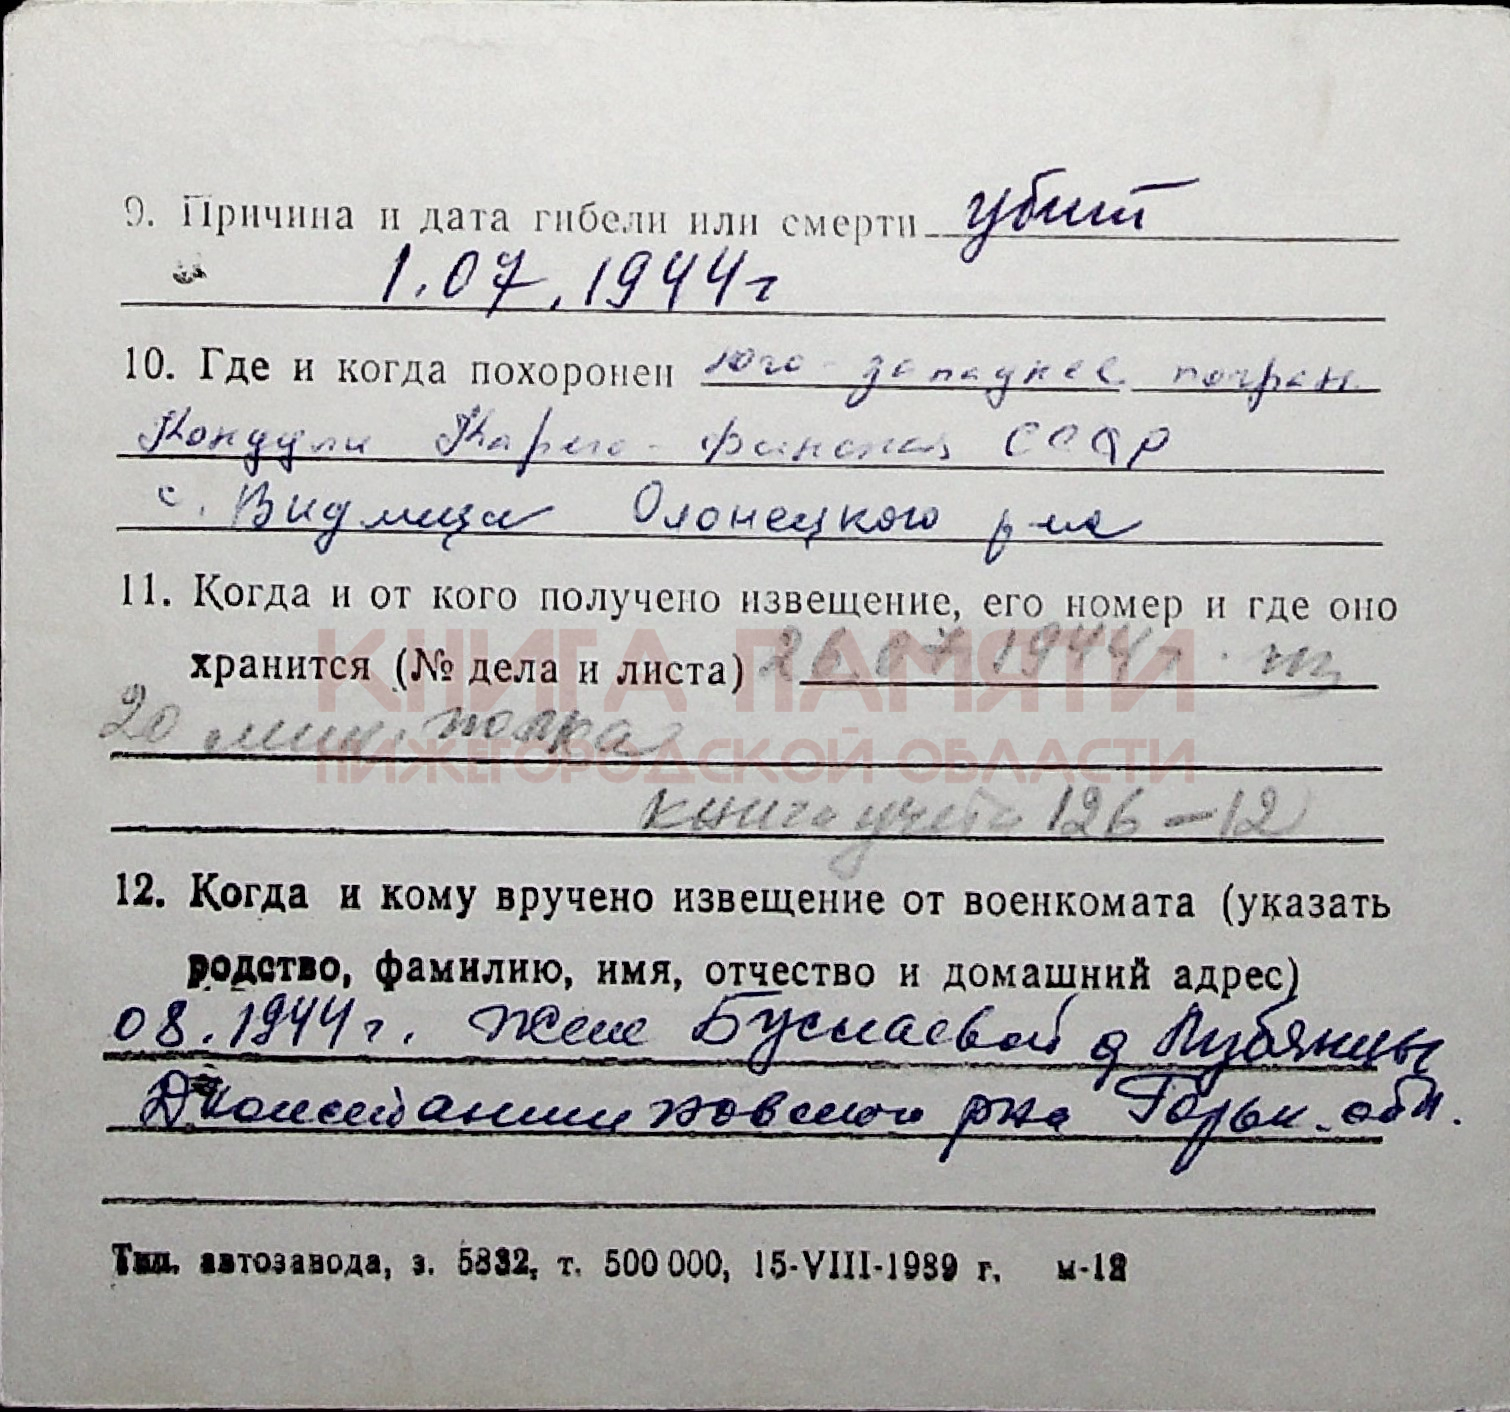 9. Причина и дата гибели или смерти убит
1.07.1944г
10. Где и когда похоронен юго-западнее погран.
Кондули Карело-финская СССР
с. Видлица Олонецкого р-на
11. Когда и от кого получено извещение, его номер и где оно
хранится (№ дела и листа) 26.07.1944г. из
КНИГА ПАМЯТИ
20 мин. полка
НИЖЕГОРОДСКОЙ ОБЛАСТИ
книга учета 126-12
12. Когда и кому вручено извещение от военкомата (указать
родство, фамилию, имя, отчество и домашний адрес)
08.1944г. Жене Буслаевой д Лубянцы
рна Горьк. обл.
Тип. автозавода, з. 5832, т. 500 000, 15-VIII-1989 г. м-18